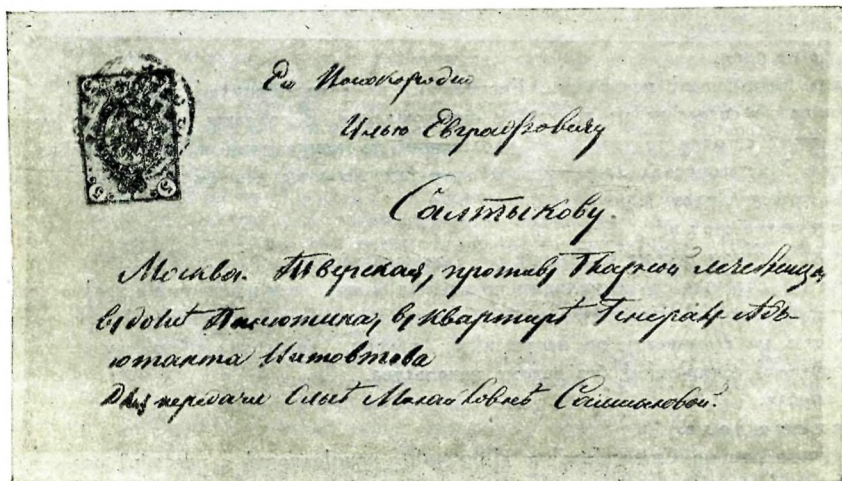 5 5
Его Высокородию
Илью Евграфовичу
Салтыкову.
Москва. Тверская, противъ Глазной лечебницы,
въ домѣ въ квартирѣ Генералъ-Адъ-
ютанта Витовтова
Для передачи Ольгѣ Михайловнѣ Салтыковой.